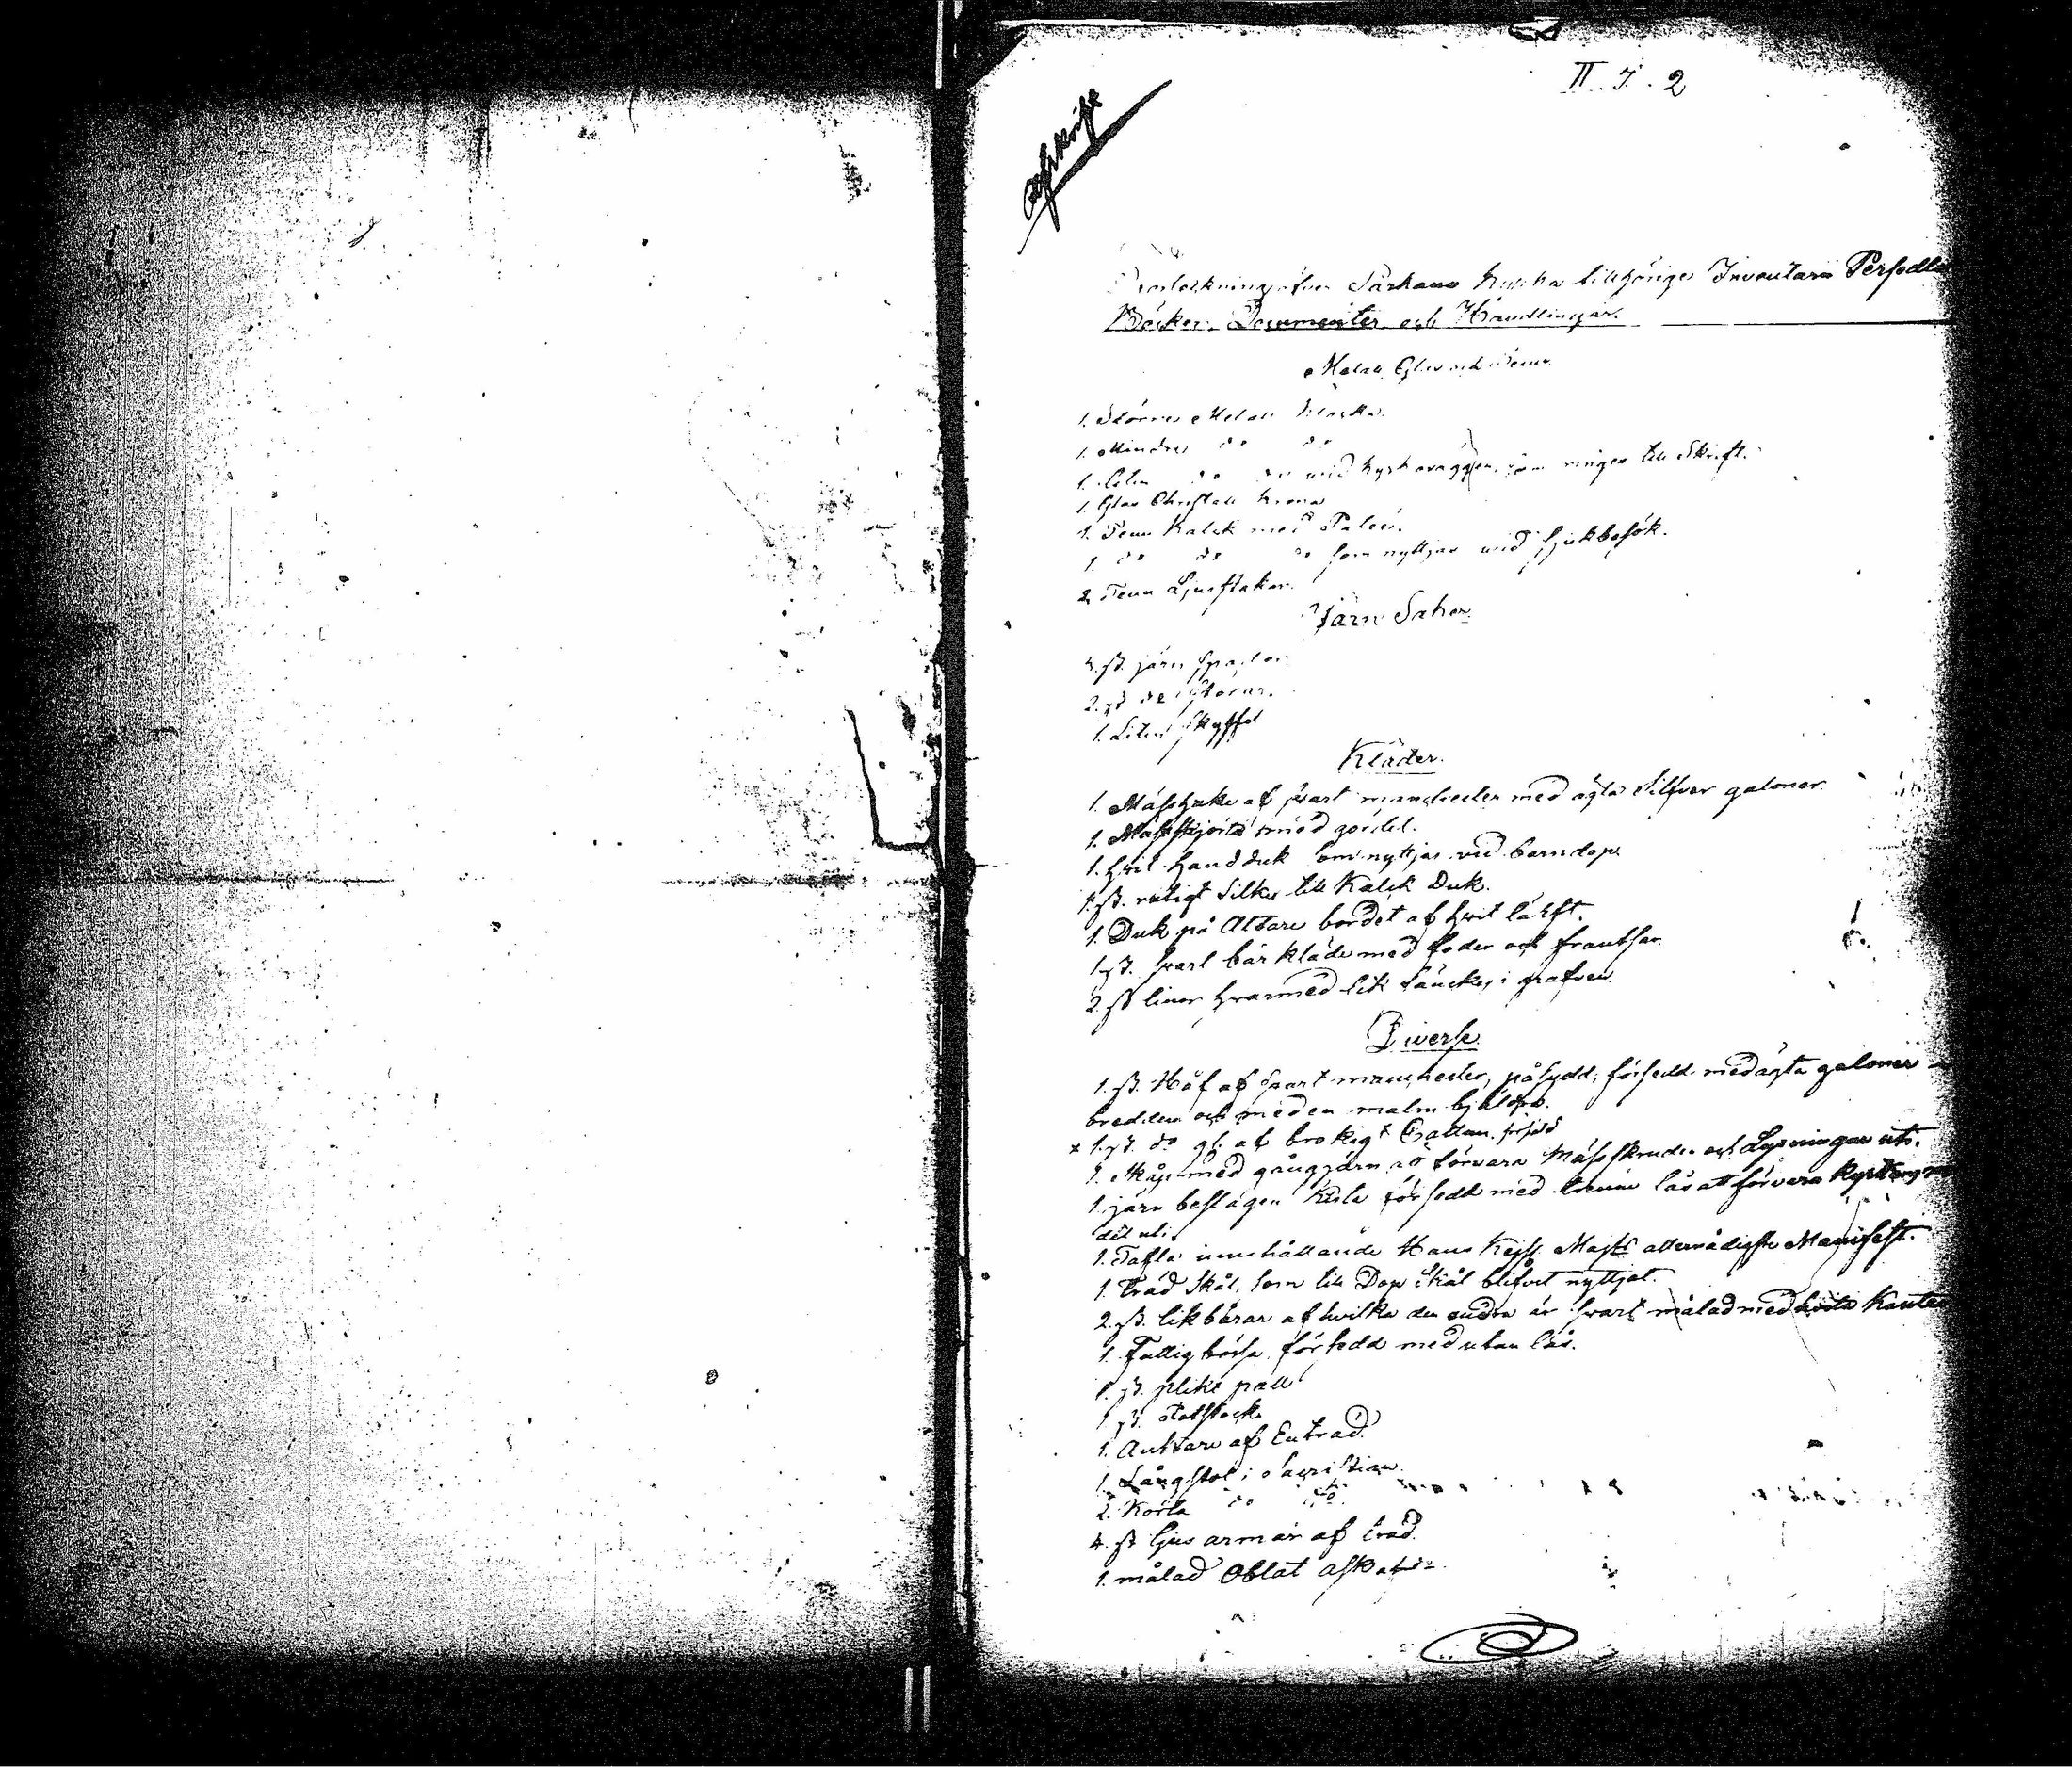 II. J. 2
Afskrift
öfver Särkane Kyrka tillhörige Inventarii Persedlar
Böcker, Documenter och Handlingar.
Metall, Glas och Tenn.
1. Större Metall Klocka.
1. Mindre do do
1. liten do do wid Kyrkoväggen, som ringes till Skrift.
1. Glas Christall Krona
1. Tenn Kalck med Paten.
1. do do do som nyttjas wid sjukbesök.
2 Tenn Ljusstakar.
Järn Saker
st. järn
2. st do Störar.
1. Liten skyffel
Kläder.
1. Mässhake af svart manchester med ägta Silfver galoner.
1. Mässskjorta med gördel.
1. hvit handduk som nyttjas vid barndop
1. st. rutigt Silke till Kalck Duk.
1. Duk på Altare bordet af hvit lärft.
1. st. svart bårkläde med foder och frantsar.
2. st linor hvarmed lik sänckes i grafven.
Diverse
1. st. Håf af svart manchester, påsydd, försedd med ägta galoner
bredden och med en malm bjeldra.
x 1. st. do gl. af brokigt Cattun försedd
1. Skåp med gångjärn att förvara Mässskruden och Lysningar uti.
1. järn beslagen Kista försedd med trenne lås att förvara
det uti.
1. Tafla innehållande Hans Kejss. Majts allernådigste Manifest.
1. träd Skål, som till Dop Skål blifvit nyttjat.
2. st. likbårar af hvilka den endra är svart målad med hvita Kanter
1. Fattig bössa försedd med utan lås.
1. st. plikt pall
1 st. stockstock
1. Aultare af Enträd.
1. Långstol i Sacristian.
2. Korta do do
4. st ljus armar af träd.
1. målad Oblat ask